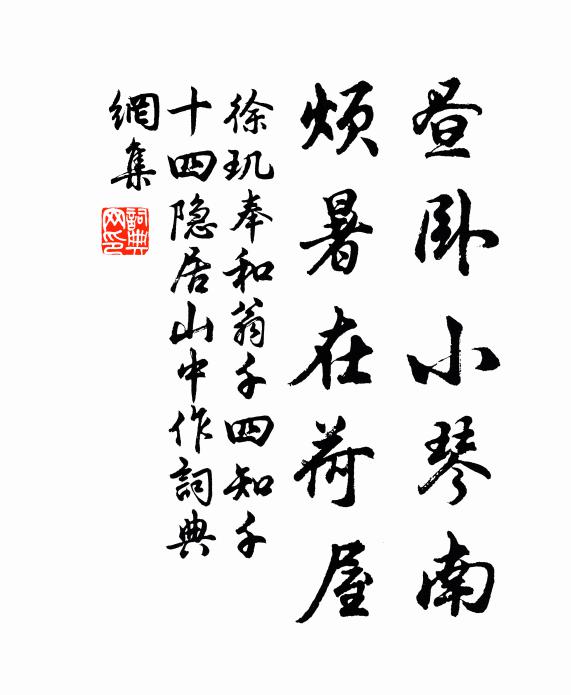 昼卧小琴南
烦暑在荷屋
徐玑奉和翁千四知千
十四隐居山中作詞典
網集
詞典网印